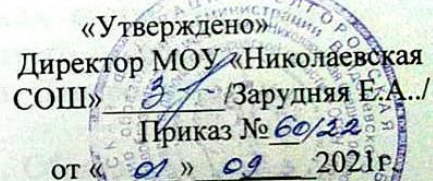 «Утверждено»
Директор МОУ «Николаевская
СОШ» /Зарудняя Е.А../
Приказ № 60/22
от « 01 » 09 2021г